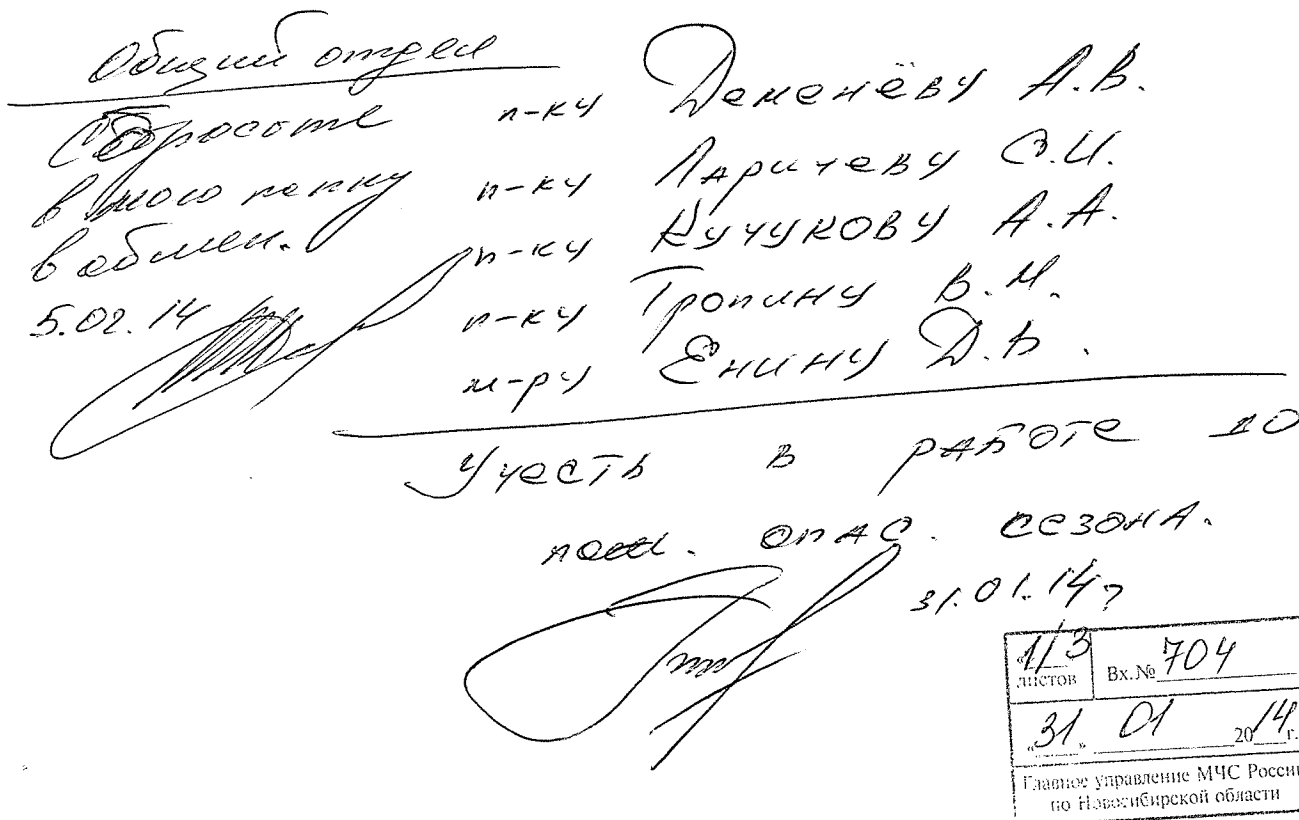 Общий отдел
Сбросьте
в мою папку
в обмен.
5.02.14
п-ку Деменёву А.В.
п-ку Ларичеву С.И.
п-ку Кучукову А.А.
п-ку Тропину В.М.
м-ру Енину Д.В.
Учесть в работе до
пож. опас. сезона.
31.01.14г
1/3
листов
Вх.№ 704
"31" 01 2014г.
Главное управление МЧС России
по Новосибирской области